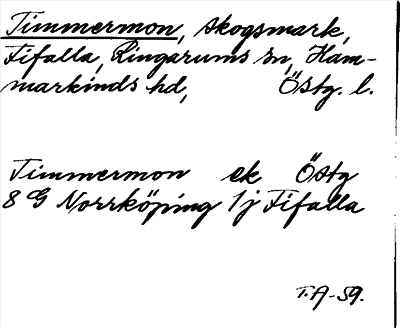 Timmermon, skogsmark,
Fifalla, Ringarums sn, Ham-
markinds hd, Östg. l.
Timmermon ek Östg
8 G Norrköping 1j Fifalla
T.A-59.